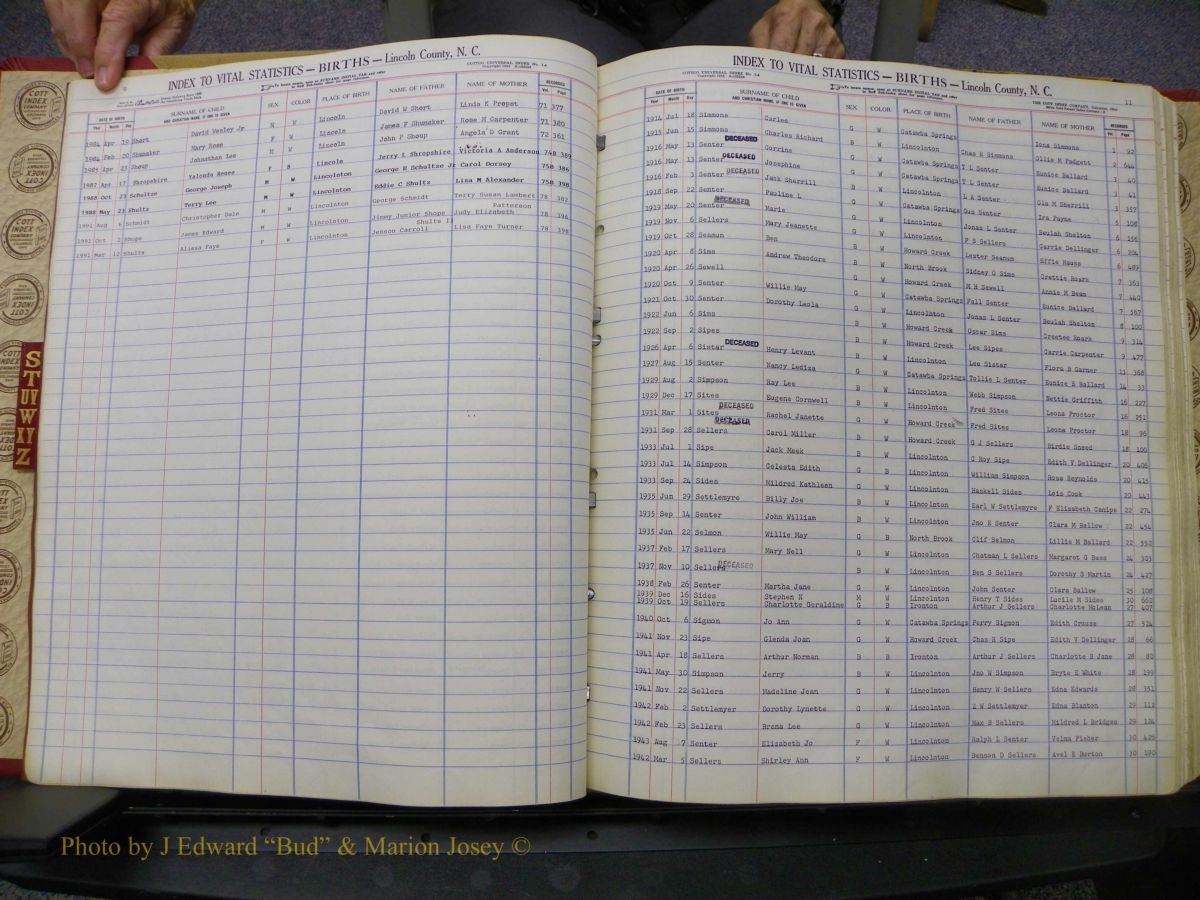 INDEX TO VITAL STATISTICS — BIRTHS — Lincoln County, N. C.
COTT INDEX COMPANY
S
T
U
V
W
X
Y
Z
DATE OF BIRTH
Year Month Day
SURNAME OF CHILD
AND CHRISTIAN NAME, IF ONE IS GIVEN
SEX
COLOR
PLACE OF BIRTH
NAME OF FATHER
NAME OF MOTHER
RECORDED
Vol. Page
1984 Apr 19 Short David Wesley Jr M W Lincoln David W Short Linda K Propst 71 377
1984 Feb 20 Shumaker Mary Rose F W Lincoln James F Shumaker Rose M Carpenter 71 380
1985 Apr 23 Shoup Johnathan Lee M W Lincoln John P Shoup Angela D Grant 72 361
1987 Apr 17 Shropshire Yalonda Renee F B Lincoln Jerry L Shropshire Victoria A Anderson 74B 389
1988 Oct 23 Schultze George Joseph M W Lincolnton George R Schultze Jr Carol Dorsey 75B 386
1988 May 23 Shultz Terry Lee M W Lincolnton Eddie C Shultz Lisa M Alexander 75B 398
1991 Aug 6 Schmidt Christopher Dale M W Lincolnton George Schmidt Terry Susan Lambert 78 382
1991 Oct 2 Shope James Edward M W Lincolnton Jimmy Junior Shope Judy Elizabeth Patterson 78 396
1991 Mar 12 Shults Alissa Faye F W Lincolnton Jenson Carroll Shults II Lisa Faye Turner 78 398
INDEX TO VITAL STATISTICS — BIRTHS — Lincoln County, N. C.
11
DATE OF BIRTH
Year Month Day
SURNAME OF CHILD
AND CHRISTIAN NAME, IF ONE IS GIVEN
SEX
COLOR
PLACE OF BIRTH
NAME OF FATHER
NAME OF MOTHER
RECORDED
Vol. Page
1914 Jul 18 Simmons Carles G W Catawba Springs Iona Simmons 1 92
1915 Jun 15 Simmons Charles Richard B W Lincolnton Chas R Simmons Ollie M Padgett 2 644
1916 May 13 Senter DECEASED Corrine G W Catawba Springs T L Senter Eunice Ballard 3 40
1916 May 13 Senter DECEASED Josephine G W Catawba Springs T L Senter Eunice Ballard 3 41
1916 Feb 3 Senter DECEASED Jack Sherrill B W Lincolnton L A Senter Ola M Sherrill 3 357
1918 Sep 22 Senter Pauline L G W Catawba Springs Gus Senter Ira Payne 5 108
1919 May 20 Senter DECEASED Marie G W Lincolnton Jonas L Senter Beulah Shelton 6 156
1919 Nov 6 Sellers Mary Jeanette G W Lincolnton P S Sellers Carrie Dellinger 6 204
1919 Oct 28 Seamun Ben B W Howard Creek Lester Seamun Effie Hauss 6 489
1920 Apr 8 Sims Andrew Theodore B W North Brook Sidney G Sims Crettie Roark 7 363
1920 Apr 26 Sewell G W Howard Creek M H Sewell Annie M Beam 7 440
1920 Oct 9 Senter Willie May G W Catawba Springs Fall Senter Eunice Ballard 7 567
1921 Oct 30 Senter Dorothy Leola G W Lincolnton Jonas L Senter Beulah Shelton 8 100
1922 Jun 6 Sims B W Howard Creek Oscar Sims Creetee Roark 9 314
1922 Sep 2 Sipes B W Howard Creek Lee Sipes Carrie Carpenter 9 477
1926 Apr 6 Sister DECEASED Henry Levant B W Lincolnton Lee Sister Flora B Garner 13 368
1927 Aug 15 Senter Nancy Lediza G W Catawba Springs Tollie L Senter Eunice E Ballard 14 33
1929 Aug 2 Simpson Ray Lee B W Lincolnton Webb Simpson Nettie Griffith 16 227
1929 Dec 17 Sites Eugene Cornwell B W Lincolnton Fred Sites Leona Proctor 16 251
1931 Mar 1 Sites DECEASED Rachel Janette G W Howard Creek Fred Sites Leona Proctor 18 96
1931 Sep 28 Sellers DECEASED Carol Miller B W Howard Creek G J Sellers Birdie Sneed 18 100
1933 Jul 1 Sipe Jack Meek B W Lincolnton C Roy Sipe Edith V Dellinger 20 405
1933 Jul 14 Simpson Celesta Edith G B Lincolnton William Simpson Rosa Reynolds 20 415
1933 Sep 24 Sides Mildred Kathleen G W Lincolnton Haskell Sides Lois Cook 20 443
1935 Jun 29 Settlemyre Billy Joe B W Lincolnton Earl W Settlemyre F Elizabeth Canipe 22 274
1935 Sep 14 Senter John William B W Lincolnton Jno E Senter Clara M Ballow 22 454
1935 Jun 22 Selmon Willie May G B North Brook Clif Selmon Lillie M Ballard 22 552
1937 Feb 17 Sellers Mary Nell G W Lincolnton Chatman L Sellers Margaret G Bass 24 303
1937 Nov 10 Sellers DECEASED B W Lincolnton Ben S Sellers Dorothy S Martin 24 427
1938 Feb 26 Senter Martha Jane G W Lincolnton John Senter Clara Ballow 25 108
1939 Dec 16 Sides Stephen H M W Lincolnton Henry T Sides Lucile M Sides 30 662
1939 Oct 19 Sellers Charlotte Geraldine G B Ironton Arthur J Sellers Charlotte McLean 27 407
1940 Oct 6 Sigmon Jo Ann G W Catawba Springs Perry Sigmon Edith Crouse 27 524
1941 Nov 23 Sipe Glenda Joan G W Howard Creek Chas R Sipe Edith V Dellinger 28 66
1941 Apr 18 Sellers Arthur Norman B B Ironton Arthur J Sellers Charlotte B Jane 28 80
1941 May 30 Simpson Jerry B W Lincolnton Jno W Simpson Bryte E White 28 199
1941 Nov 22 Sellers Madeline Jean G W Lincolnton Henry W Sellers Edna Edwards 28 351
1942 Feb 2 Settlemyer Dorothy Lynette G W Lincolnton Z W Settlemyer Edna Blanton 29 112
1942 Feb 23 Sellers Brena Lee G W Lincolnton Max B Sellers Mildred L Bridges 29 124
1943 Aug 7 Senter Elizabeth Jo F W Lincolnton Ralph L Senter Velma Fisher 30 425
1942 Mar 5 Sellers Shirley Ann F W Lincolnton Benson D Sellers Avel E Burton 30 190
Photo by J Edward “Bud” & Marion Josey ©